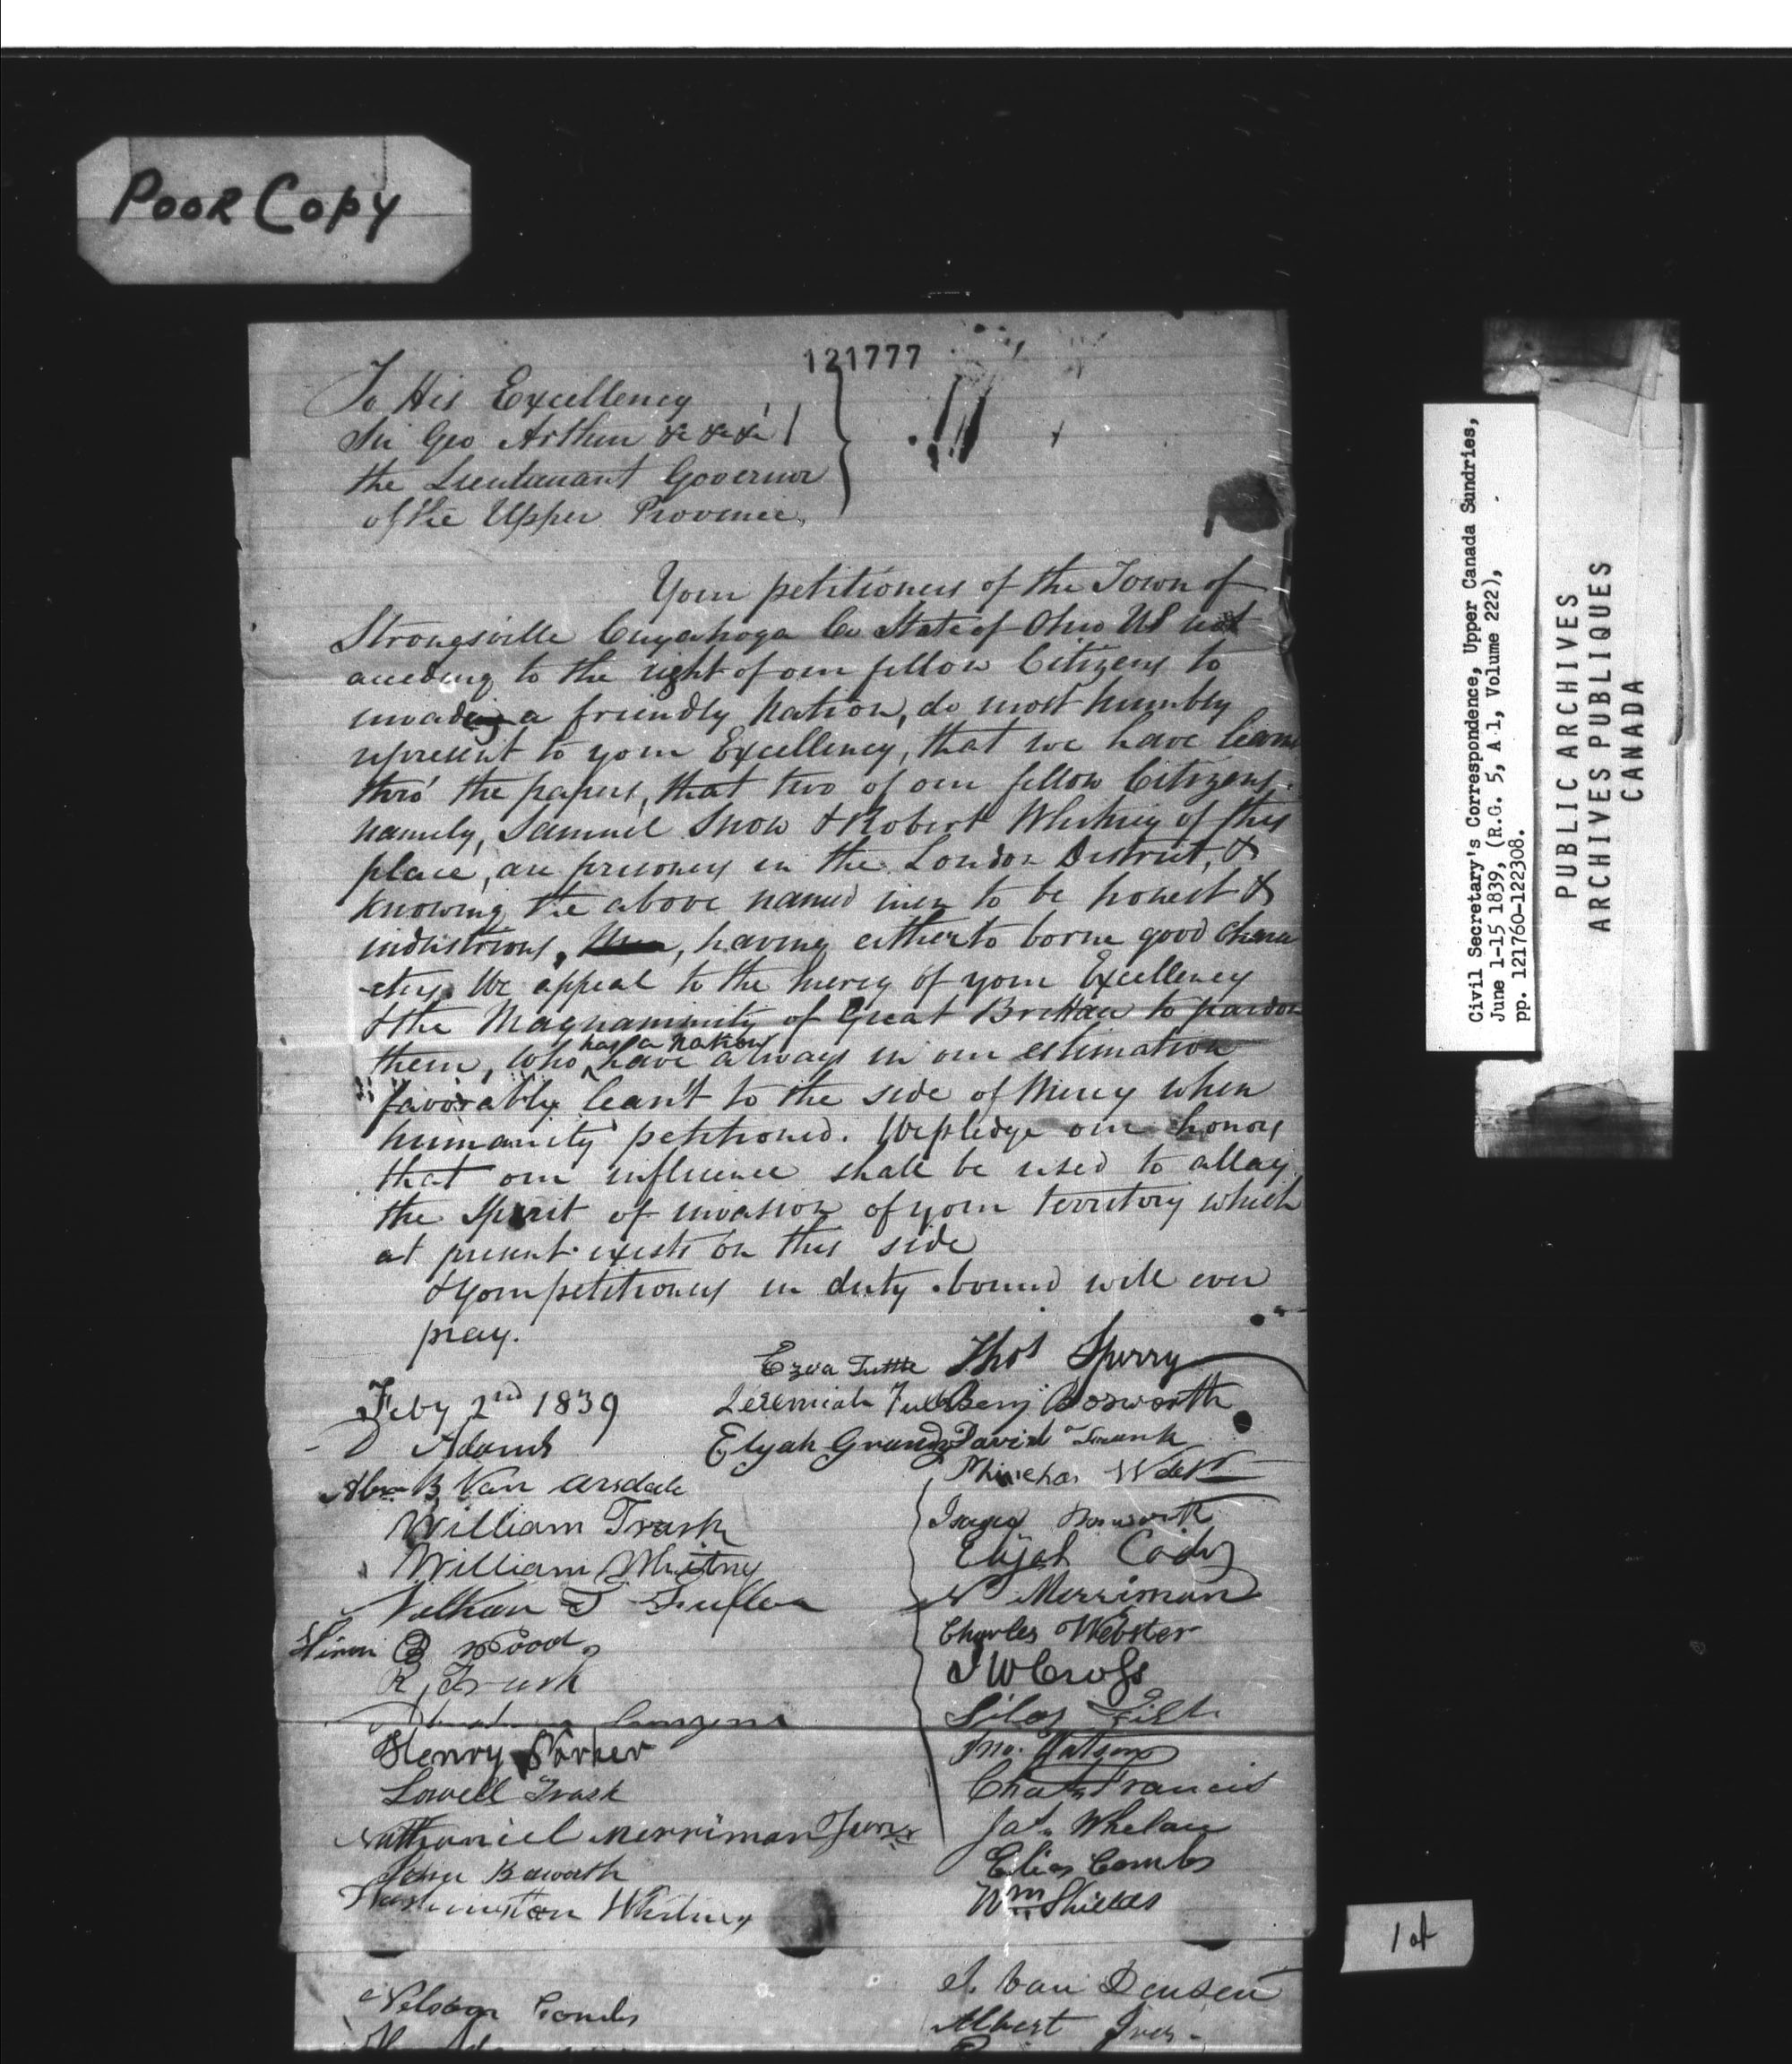 Poor Copy
121777
To His Excellency
Sir Geo Arthur &c &c &c
the Lieutanant Governor
of the Upper Province,
Your petitioners of the Town of
Strongsville Cuyahoga Co State of Ohio US not
acceding to the right of our fellow Citizens to
invade a friendly Nation, do most humbly
represent to your Excellency, that we have learn
thro' the papers, that two of our fellow Citizens
namely, Samuel Snow & Robert Whitney of this
place, are prisoners in the London District, &
knowing the above named men to be honest &
industrious, having eitherto borne good Chara
-cters We appeal to the Mercy of your Excellency
& the Magnaminity of Great Brittan to pardon
has a nation
them, who have always in our estimation
favorably lean't to the side of Mercy when
humanity petitioned. We pledge our honors
that our influence shall be used to allay
the Spirit of invasion of your territory which
at present exists on this side
& your petitioners in duty bound will ever
pray.
Ezra Tuttle Thos Sperry
Feby 2nd 1839 Jeremiah Benj Bosworth
D Adams Elijah David
B. Van Arsdale Phinehas West
William Trash Isaac Bosworth
William Whitney Elijah Cady
T Fuller N Merriman
Hiram B Wood Charles Webster
R, Trash J W Cross
Silas
Henry Parker Jno. Watson
Lowell Trash Chas Francis
Nathaniel Merriman Junr Jas. Whelan
Elias Combs
Washington Whitney Wm Shields
J. Van Deusen
Nelson Combs
Albert Ives
Civil Secretary's Correspondence, Upper Canada Sundries,
June 1-15 1839, (R.G. 5, A 1, Volume 222),
pp. 121760-122308.
PUBLIC ARCHIVES
ARCHIVES PUBLIQUES
CANADA
1 of